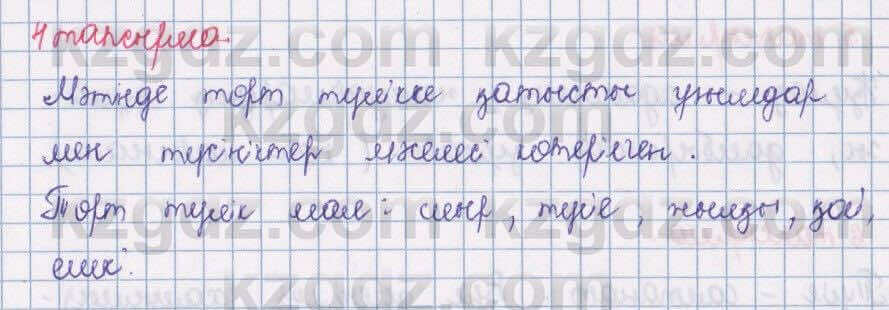 4 тапсырма.
Мәтінде төрт түлікке қатысты ұғымдар
мен түсініктер мәселесі көтерілген.
Төрт түлік мал: сиыр, түйе, жылқы, қой,
ешкі.